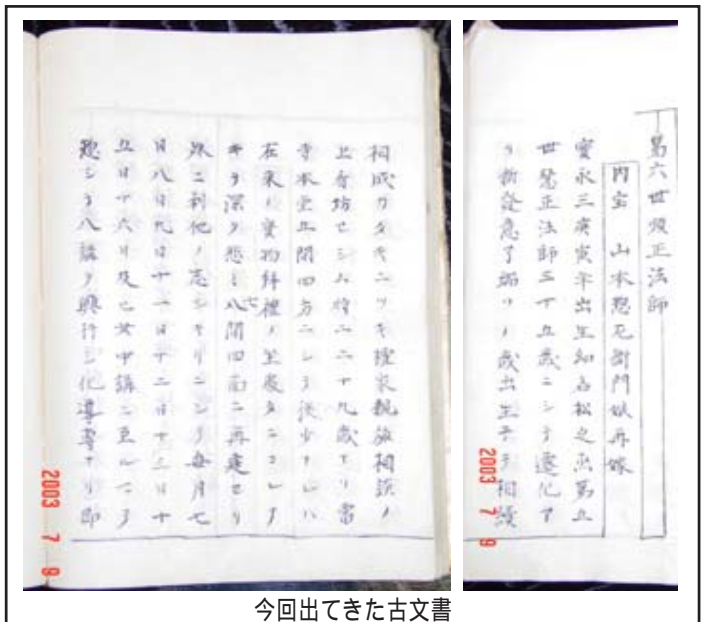 第六世正法師
内室 山本惣左衛門娘再嫁
寶永三庚寅年出生幼名松之丞第五
世正法師三十五歳ニシテ遷化了
新發意了歳出生ニテ相續
相成カタキニツキ檀家親族相談ノ
上看坊セシム時ニ二十九歳ナリ當
寺本堂五間四方ニシテ狭少ナレハ
在来ノ寳物拝禮ノ坐席タニコレナ
キヲ深ク愁ヒ七八間四面ニ再建セリ
殊ニ利他ノ志シキリニシテ毎月七
日八日九日十一日十二日十三日十
五日十六日及ヒ女中講ニ至ルマテ
惣シテ八講ヲ興行シ化導専ナリ即
2003 7 9
2003 7 9
今回出てきた古文書